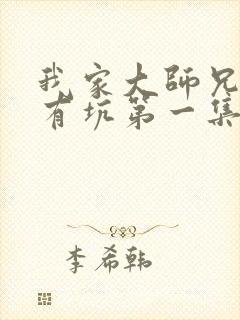 我家大師兄
有坑第一集
李希韩